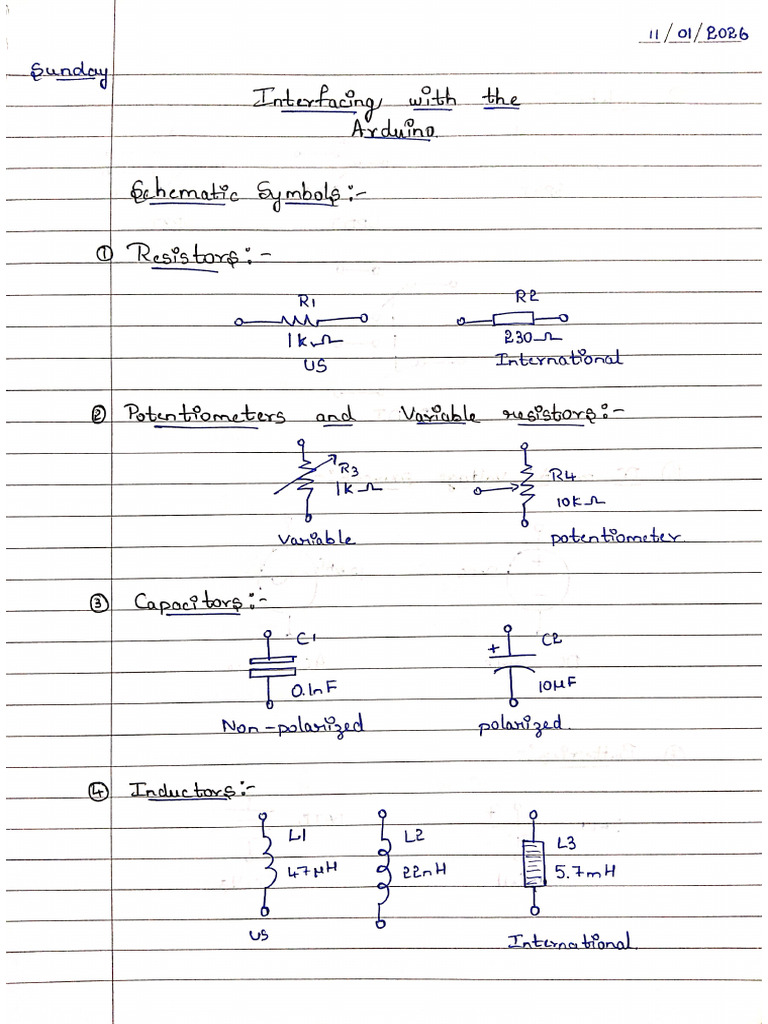 11/01/2026
Sunday
Interfacing with the
Arduino.
Schematic Symbols:-
① Resistors:-
R1 R2
1kΩ 230Ω
US International
② Potentiometers and Variable resistors:-
R3 R4
1kΩ 10kΩ
Variable potentiometer
③ Capacitors:-
C1 + C2
0.1nF 10μF
Non-polarized polarized.
④ Inductors:-
L1 L2 L3
47μH 22nH 5.7mH
US International.